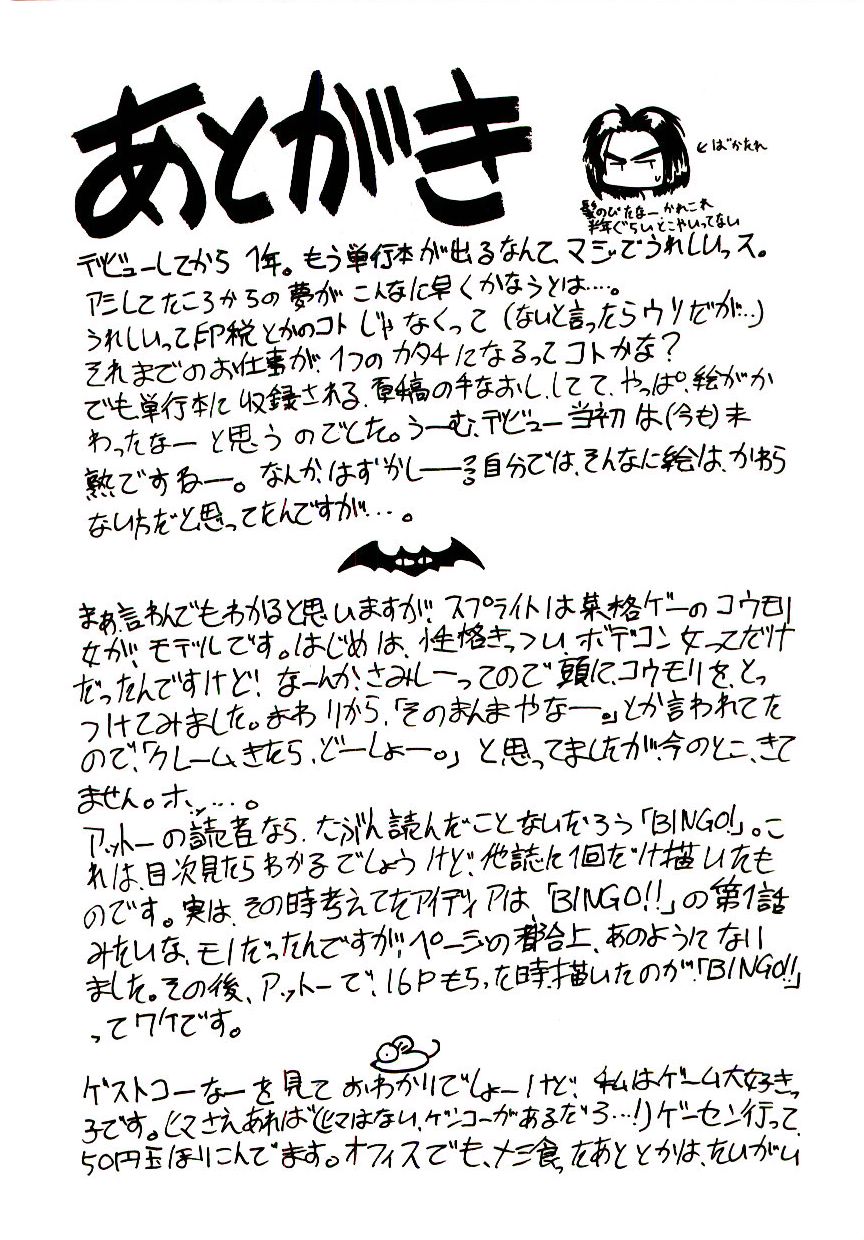 あとがき
←ばかたれ
髪のびたなー、かれこれ
半年ぐらいとこやいってない
デビューしてから 1年。もう単行本が出るなんて、マジでうれしいっス。
アシしてたころからの夢が こんなに早くかなうとは…。
うれしいって印税とかのコト じゃなくって (ないと言ったらウソだが…)
それまでのお仕事が、1つのカタチになるってコトかな?
でも、単行本に収録される、原稿の手なおし、してて、やっぱ。絵がか
わったなー と思うのでした。うーむ、デビュー当初は(今も)未
熟ですねー。なんか、はずかしー 自分では、そんなに絵は、かわら
ない方だと思ってたんですが…。
まぁ、言わんでもわかると思いますが、スプライトは某格ゲーのコウモリ
女が、モデルです。はじめは、性格きっつい、ボデコン女ってだけ
だったんですけど、なーんか、さみしーってので頭に、コウモリを、とっ
つけてみました。まわりから、「そのまんまやなー。」とか言われてた
ので、「クレーム、きたら、どーしょー。」と思ってましたが、今のとこ、きて
ません。ホッ…。
アットーの読者なら、たぶん読んだことないだろう「BINGO!」。こ
れは、目次見たらわかるでしょうけど、他誌に1回だけ描いたも
のです。実は、その時考えてたアイディアは、「BINGO!!」の第1話
みたいな、モノだったんですが、ページの都合上、あのようになり
ました。その後、アットーで、16Pもらった時、描いたのが、「BINGO!!」
ってワケです。
ゲストコーなーを見ておわかりでしょーけど、私はゲーム大好きっ
子です。ヒマさえあれば(ヒマはない、ゲンコーがあるだろ…!)ゲーセン行って、
50円玉ほりこんでます。オフィスでも、メシ食ったあととかは、たいがい